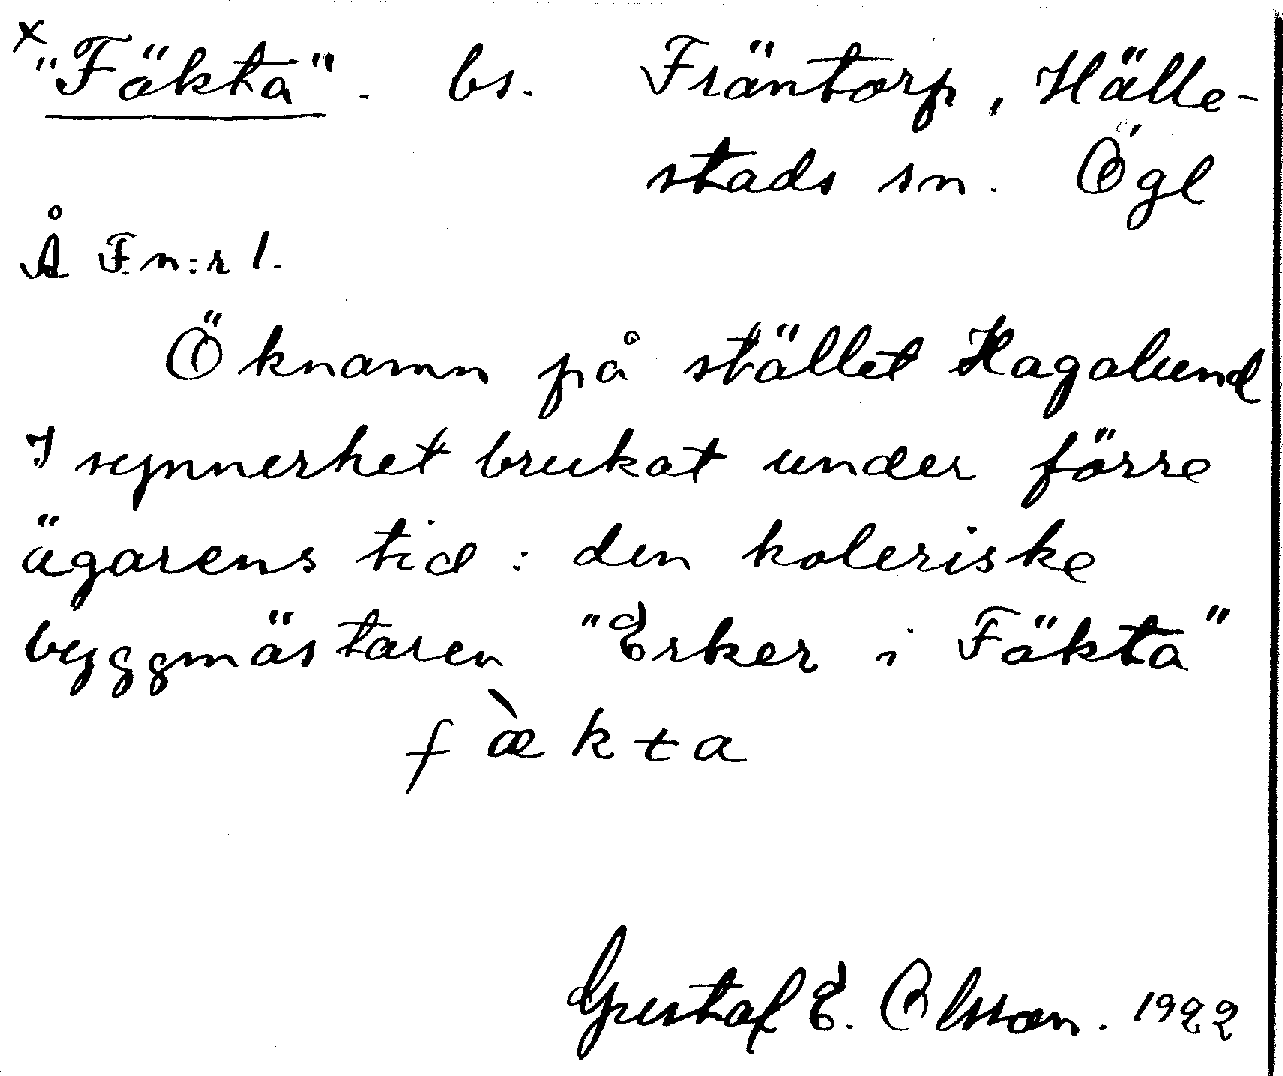 x
"Fäkta". bs. Fräntorp, Hälle-
stads sn. Ögl
Å Fn:r 1.
Öknamn på stället Hagalund
I synnerhet brukat under förre
ägarens tid: den koleriske
byggmästaren "Erker i Fäkta"
fæ̀kta
Gustaf E. Olsson. 1922